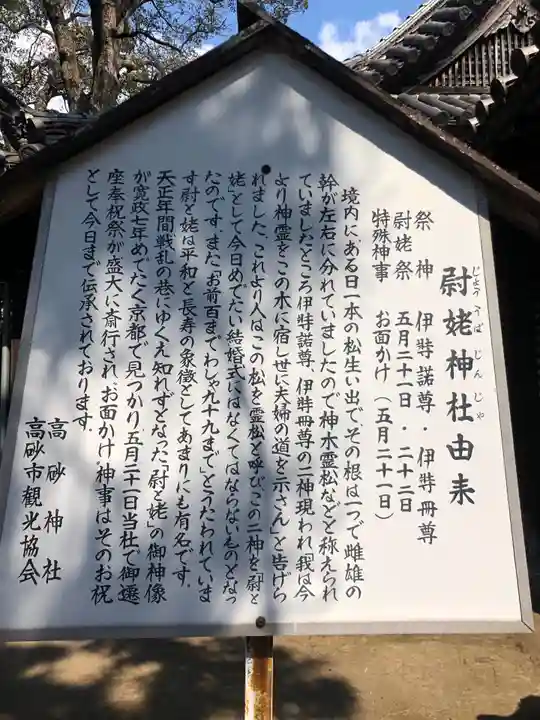 尉姥神社由来
じょううばじんじゃ
祭神　伊弉諾尊・伊弉冊尊
尉姥祭　五月二十一日・二十二日
特殊神事　お面かけ（五月二十一日）
境内にある日一本の松生い出で、その根は一つで雌雄の
幹が左右に分れていましたので神木霊松などと称えられ
ていましたところ伊弉諾尊、伊弉冊尊の二神現われ「我は今
より神霊をこの木に宿し世に夫婦の道を示さん」と告げら
れました。これより人はこの松を霊松と呼びこの二神を「尉と
姥」として今日めでたい結婚式にはなくてはならないものとなっ
たのです。また「お前百までわしゃ九十九まで」とうたわれていま
す尉と姥は平和と長寿の象徴としてあまりにも有名です。
天正年間戦乱の巷にゆくえ知れずとなった「尉と姥」の御神像
が寛政七年めでたく京都で見つかり、五月二十一日当社で御還
座奉祝祭が盛大に斎行され、お面かけ神事はそのお祝
として今日まで伝承されております。
高砂神社
高砂市観光協会